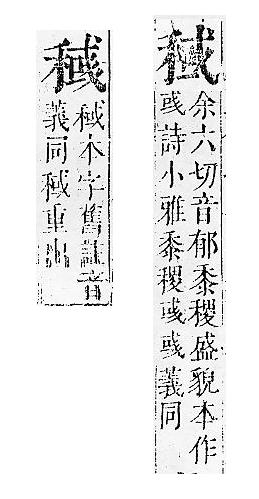 稢
余六切音郁黍稷盛貌本作
彧詩小雅黍稷彧彧義同
稶
稢本字舊註音
義同稢重出